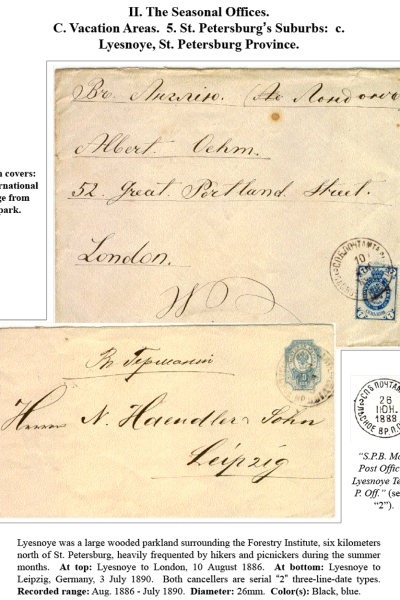 II. The Seasonal Offices.
C. Vacation Areas. 5. St. Petersburg's Suburbs: c.
Lyesnoye, St. Petersburg Province.
covers:
ernational
ge from
park.
Въ Англію. (До Лондона
Albert Oehm.
52. Great Portland Street.
London.
СПБ.ПОЧТАМТА
10
Въ Германію
Herrn N. Haendler & Sohn
Leipzig
СПБ ПОЧТАМ
26
ІЮН.
1888
ЛѢСНОЕ ВР.П.О
"S.P.B. Ma
Post Offic
Lyesnoye Te
P. Off." (se
"2").
Lyesnoye was a large wooded parkland surrounding the Forestry Institute, six kilometers
north of St. Petersburg, heavily frequented by hikers and picnickers during the summer
months. At top: Lyesnoye to London, 10 August 1886. At bottom: Lyesnoye to
Leipzig, Germany, 3 July 1890. Both cancellers are serial "2" three-line-date types.
Recorded range: Aug. 1886 - July 1890. Diameter: 26mm. Color(s): Black, blue.